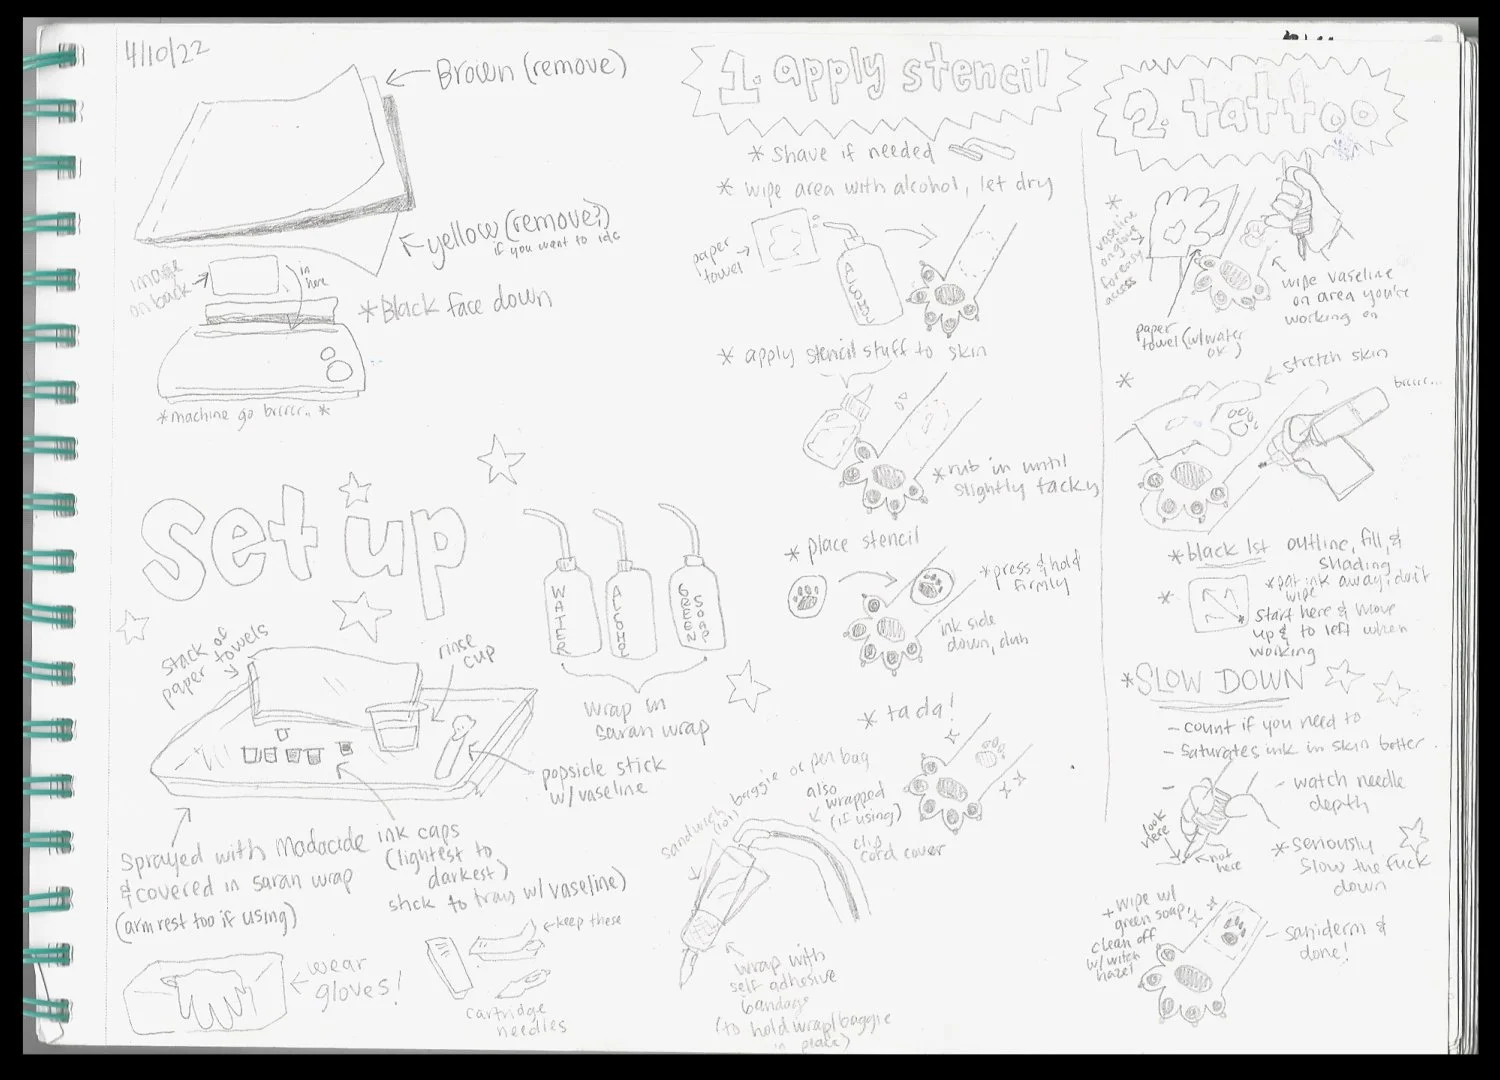 4/10/22
Brown (remove)
yellow (remove?)
if you want to idc
image
on back
in
here
*Black face down
*machine go brrrr.. *
Set up
stack of
paper towels
rinse
cup
WATER
ALCOHOL
GREEN SOAP
wrap in
saran wrap
popsicle stick
w/ vaseline
Sprayed with Madacide
& covered in saran wrap
(arm rest too if using)
ink caps
(lightest to
darkest)
stick to tray w/ vaseline)
wear
gloves!
keep these
cartridge
needles
1. apply stencil
* shave if needed
* wipe area with alcohol, let dry
paper
towel
ALCOHOL
* apply stencil stuff to skin
*rub in until
slightly tacky
* place stencil
*press & hold
firmly
ink side
down, duh
* tada!
sandwich baggie or pen bag
(lol)
also
wrapped
(if using)
clip
cord cover
wrap with
self adhesive
bandage
(to hold wrap/baggie
in place)
2. tattoo
*
vaseline
on glove
for easy
access
paper
towel (w/water
ok)
wipe vaseline
on area you're
working on
*
stretch skin
brrrr...
*black 1st outline, fill, &
shading
*pat ink away, don't
wipe
*
Start here & move
up & to left when
working
*SLOW DOWN
- count if you need to
- saturates ink in skin better.
- watch needle
depth
look
here
not
here
*seriously
slow the fuck
down
+ wipe w/
green soap,
clean off
w/ witch
hazel
- saniderm &
done!